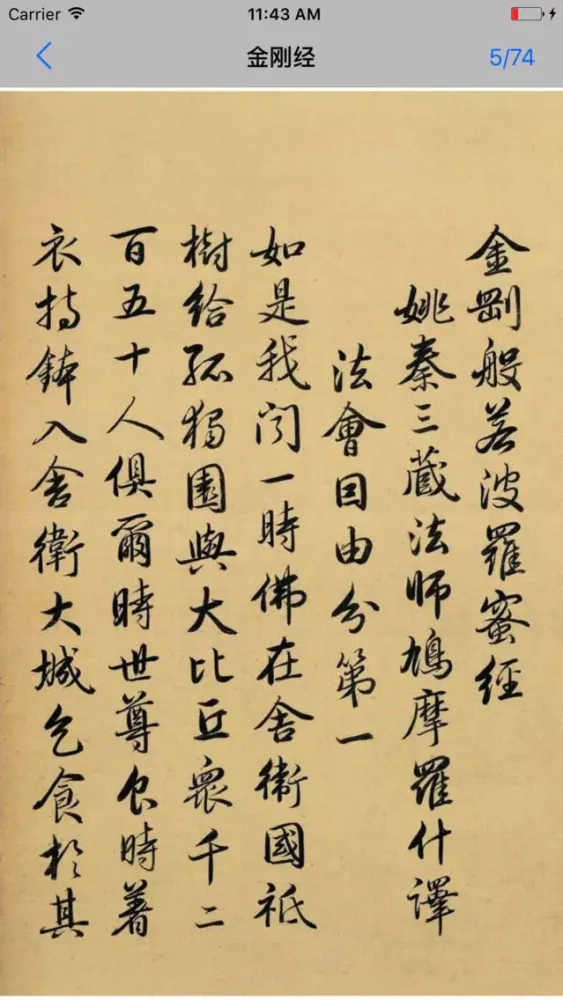 Carrier 11:43 AM
金刚经
5/74
金剛般若波羅蜜経
姚秦三蔵法師鳩摩羅什譯
法會因由分第一
如是我闻一時佛在舎衛國祇
樹给孤獨園與大比丘衆千二
百五十人俱爾時世尊食時著
衣持鉢入舎衛大城乞食於其